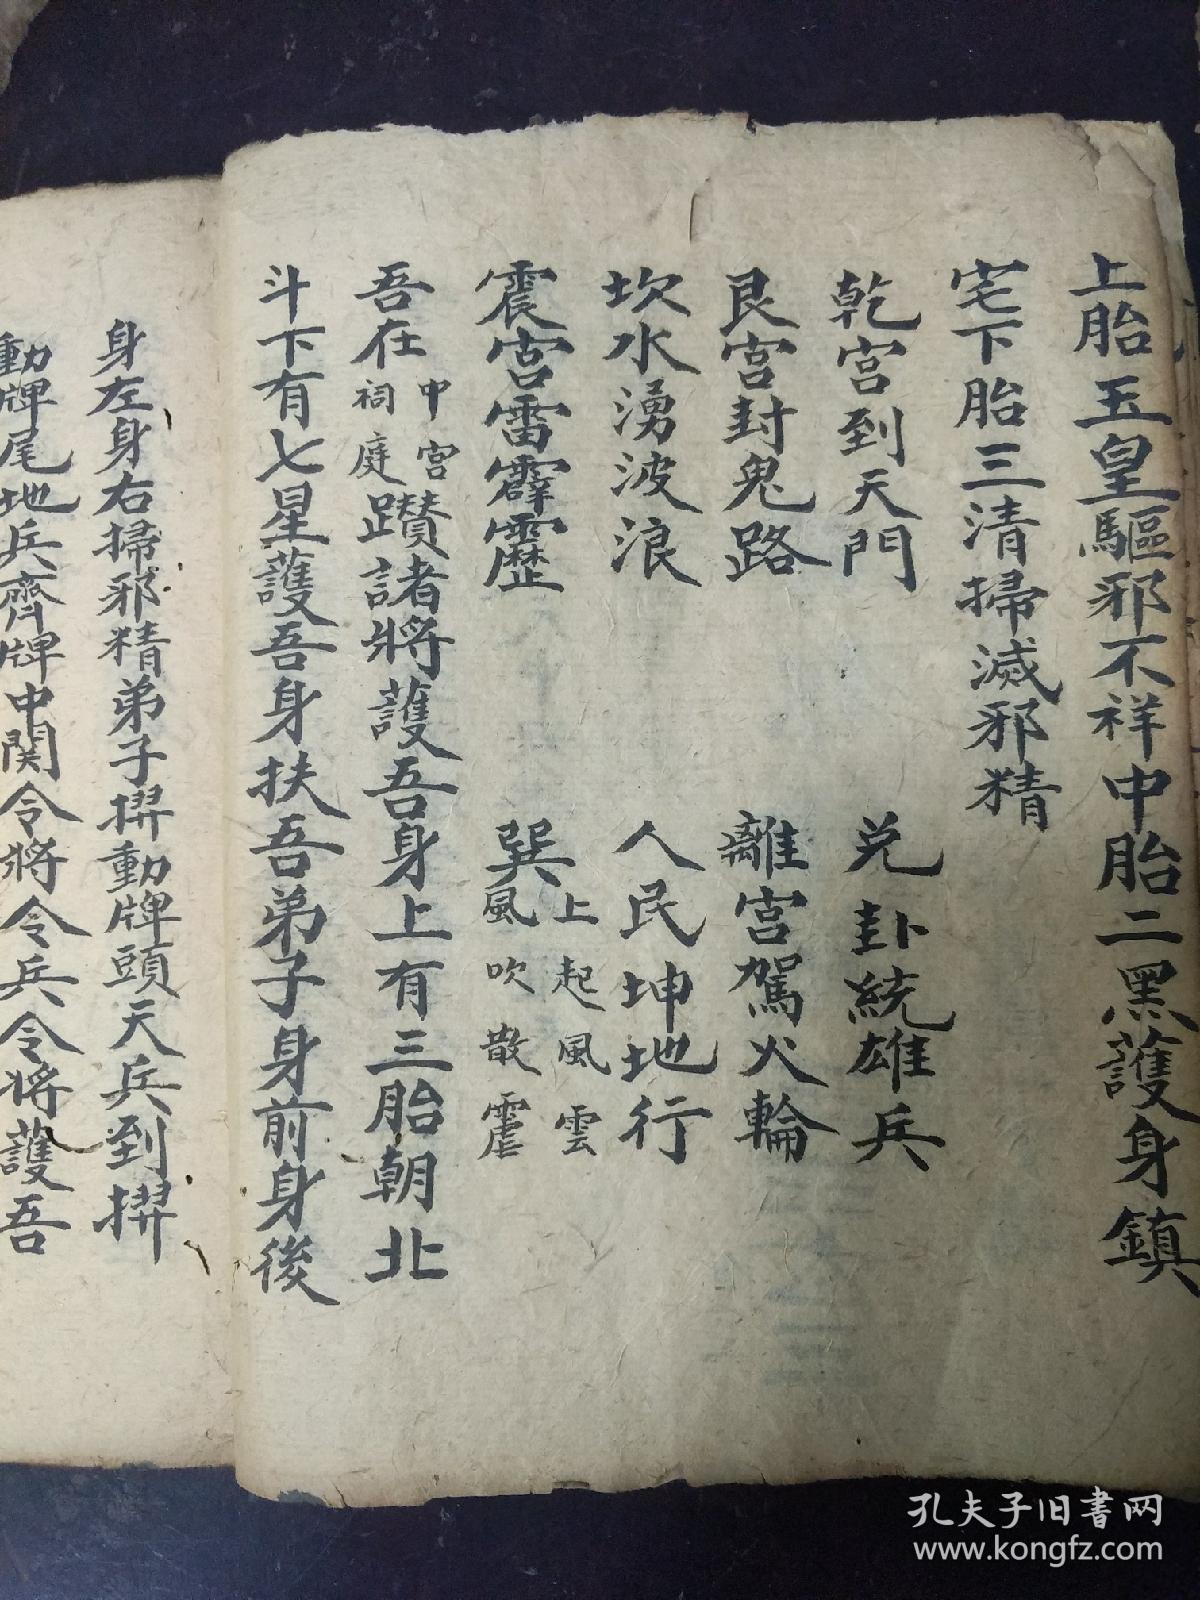 上胎五皇驅邪不祥中胎二黑護身鎮
宅下胎三清掃滅邪精
乾宮到天門 兌卦統雄兵
艮宮封鬼路 離宮駕火輪
坎水湧波浪 人民坤地行
震宮雷霹靂 巽上起風雲
風吹散霪
吾在中宮
祠庭
躦諸將護吾身上有三胎朝北
斗下有七星護吾身扶吾弟子身前身後
身左身右掃邪精弟子擇動牌頭天兵到擇
動牌尾地兵齊牌中関令將令兵令將護吾
孔夫子旧书网
www.kongfz.com